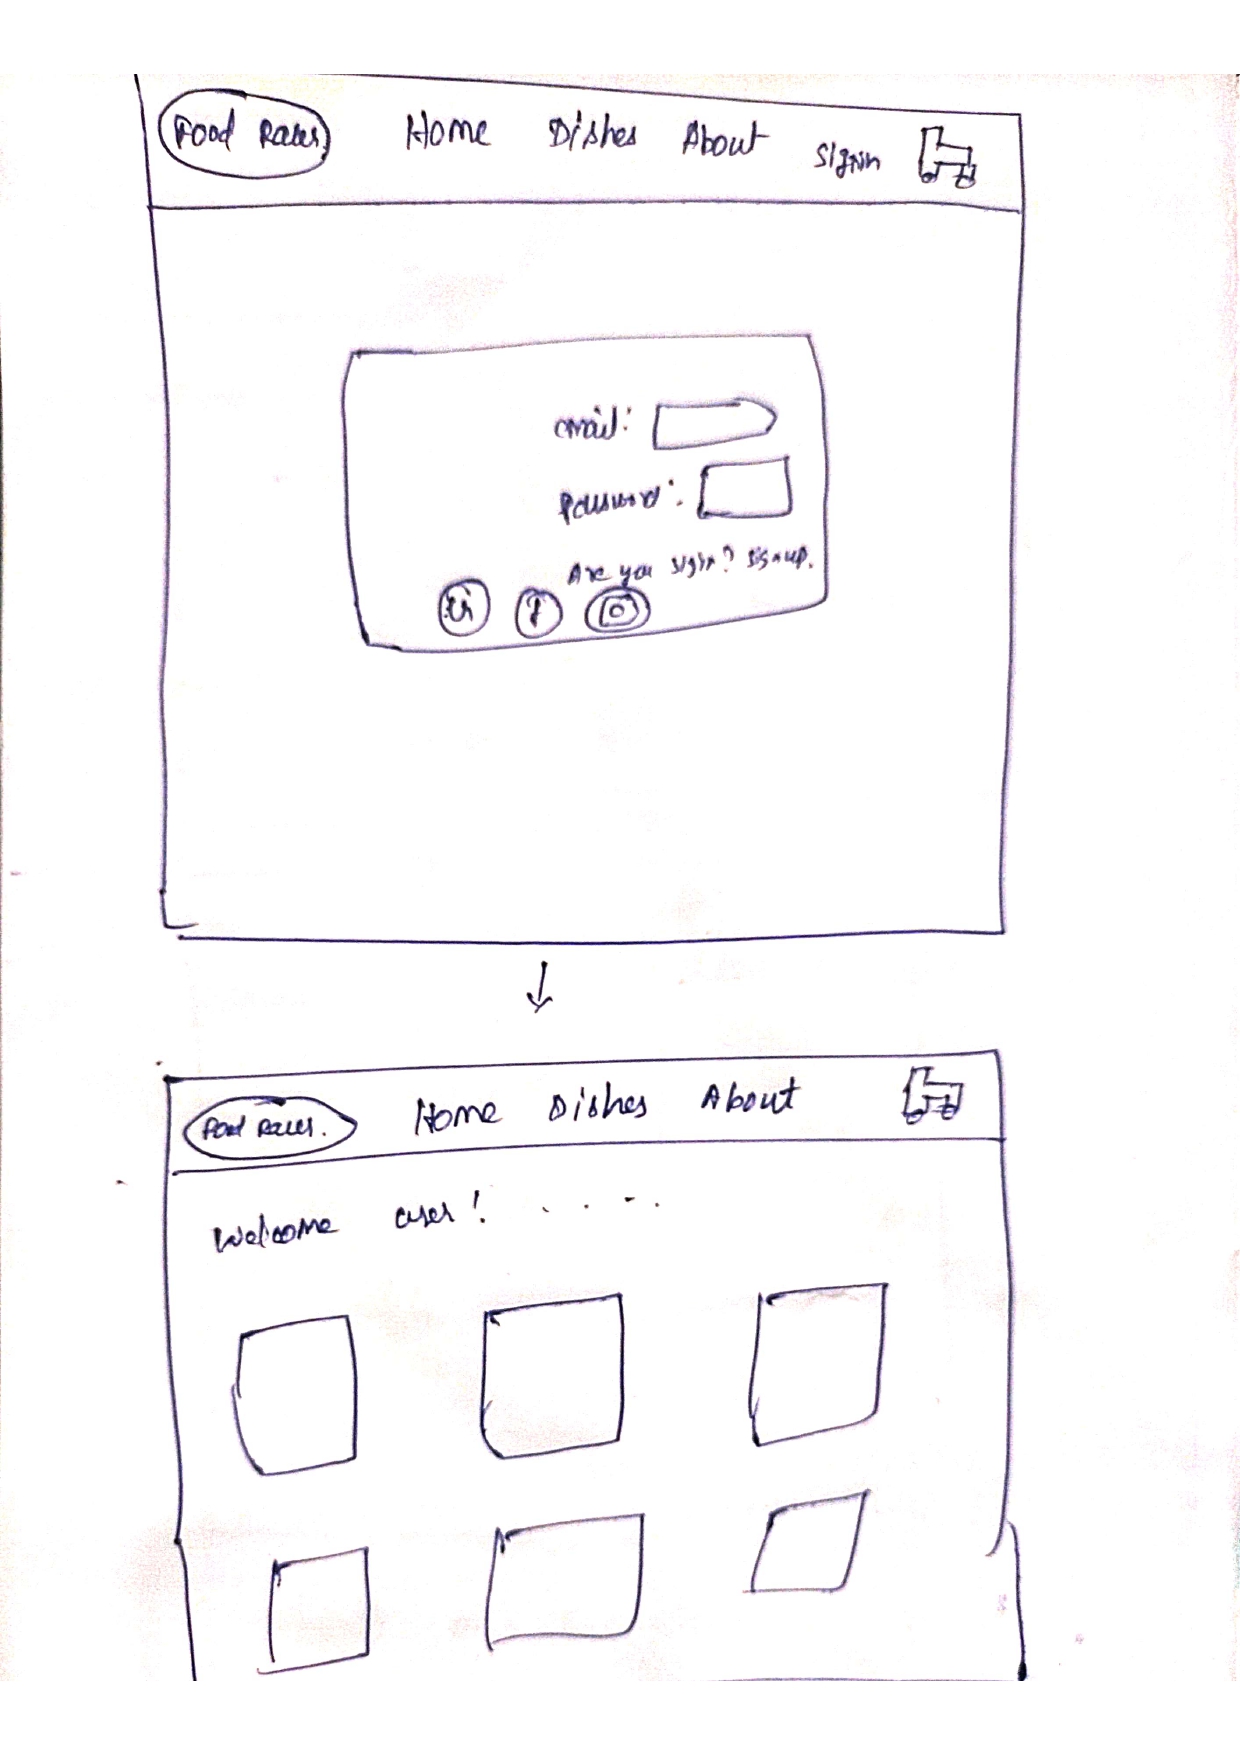 Food Races Home Dishes About Signin
email:
Password:
Are you sign? signup.
f
Food Races. Home Dishes About
Welcome user! . . . - .